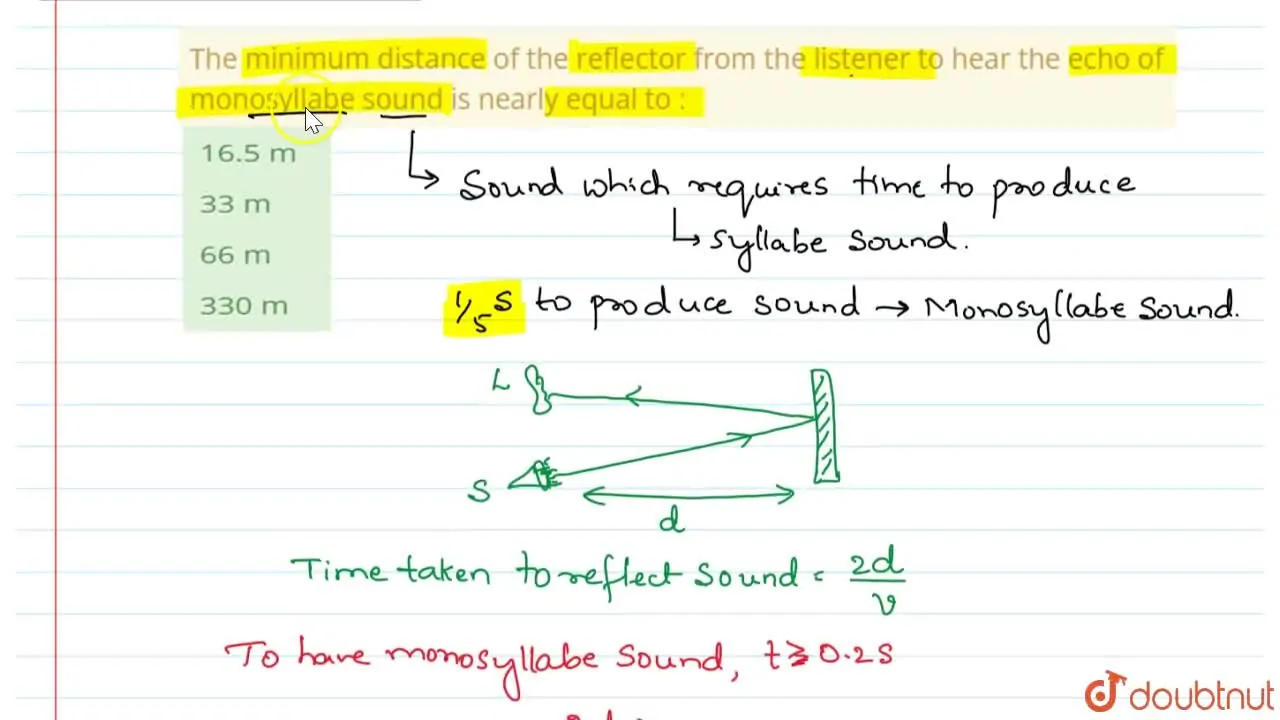 The minimum distance of the reflector from the listener to hear the echo of
monosyllabe sound is nearly equal to :
16.5 m
33 m
66 m
330 m
Sound which requires time to produce
syllabe sound.
1/5 s to produce sound → Monosyllabe Sound.
L
S
d
Time taken to reflect sound = 2d/v
To have monosyllabe sound, t ≥ 0.2s
doubtnut